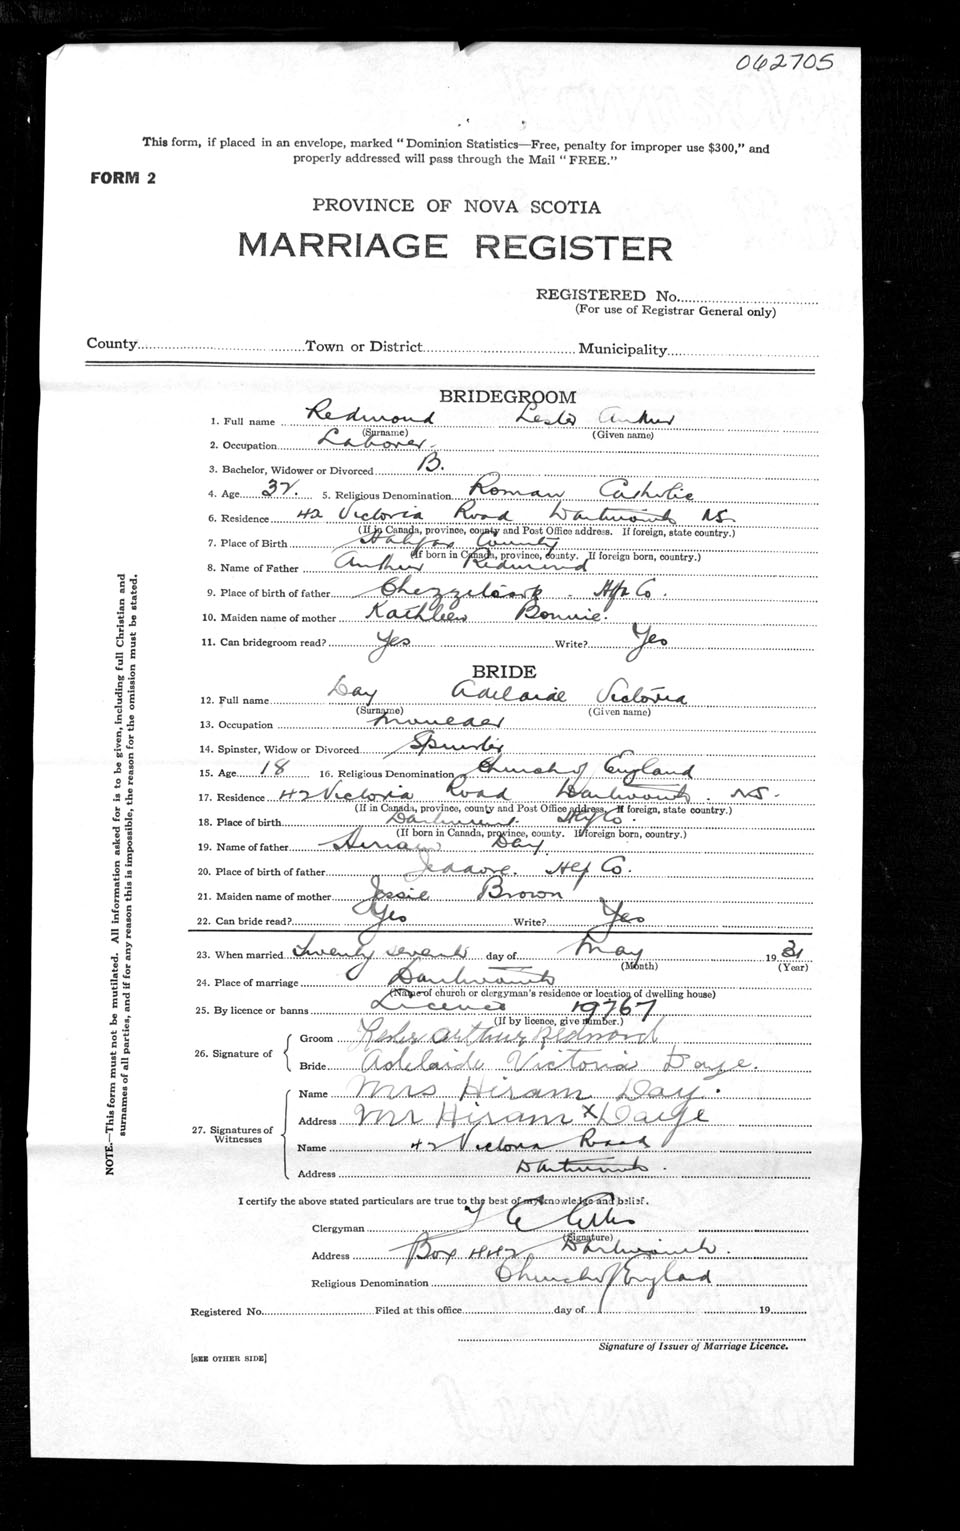 062705
This form, if placed in an envelope, marked "Dominion Statistics—Free, penalty for improper use $300," and
properly addressed will pass through the Mail "FREE."
FORM 2
PROVINCE OF NOVA SCOTIA
MARRIAGE REGISTER
REGISTERED No.
(For use of Registrar General only)
County Town or District Municipality
NOTE.—This form must not be mutilated. All information asked for is to be given, including full Christian and
surnames of all parties, and if for any reason this is impossible, the reason for the omission must be stated.
BRIDEGROOM
1. Full name Redmond Lester Arthur
(Surname) (Given name)
2. Occupation Laborer
3. Bachelor, Widower or Divorced B.
4. Age 32. 5. Religious Denomination Roman Catholic
6. Residence 42 Victoria Road Dartmouth NS
(If in Canada, province, county and Post Office address. If foreign, state country.)
7. Place of Birth Halifax County
(If born in Canada, province, county. If foreign born, country.)
8. Name of Father Arthur Redmond
9. Place of birth of father Chezzetcook Hfx Co.
10. Maiden name of mother Kathleen Bonnie.
11. Can bridegroom read? Yes Write? Yes
BRIDE
12. Full name Day Adelaide Victoria
(Surname) (Given name)
13. Occupation
14. Spinster, Widow or Divorced Spinster
15. Age 18 16. Religious Denomination Church of England
17. Residence 42 Victoria Road Dartmouth. NS.
(If in Canada, province, county and Post Office address. If foreign, state country.)
18. Place of birth Dartmouth Hfx Co.
(If born in Canada, province, county. If foreign born, country.)
19. Name of father Hiram Day
20. Place of birth of father Jeddore. Hfx Co.
21. Maiden name of mother Jessie Brown
22. Can bride read? Yes Write? Yes
23. When married Twenty seventh day of May 19 31
(Month) (Year)
24. Place of marriage Dartmouth
(Name of church or clergyman's residence or location of dwelling house)
25. By licence or banns Licence 19767
(If by licence, give number.)
26. Signature of
Groom Lester Arthur Redmond
Bride Adelaide Victoria Daye.
27. Signatures of Witnesses
Name Mrs Hiram Day.
Address Mr Hiram X Daye
Name 42 Victoria Road
Address Dartmouth.
I certify the above stated particulars are true to the best of my knowledge and belief.
Clergyman
(Signature)
Address Box 442 Dartmouth.
Religious Denomination Church of England
Registered No. Filed at this office day of 19
Signature of Issuer of Marriage Licence.
[SEE OTHER SIDE]